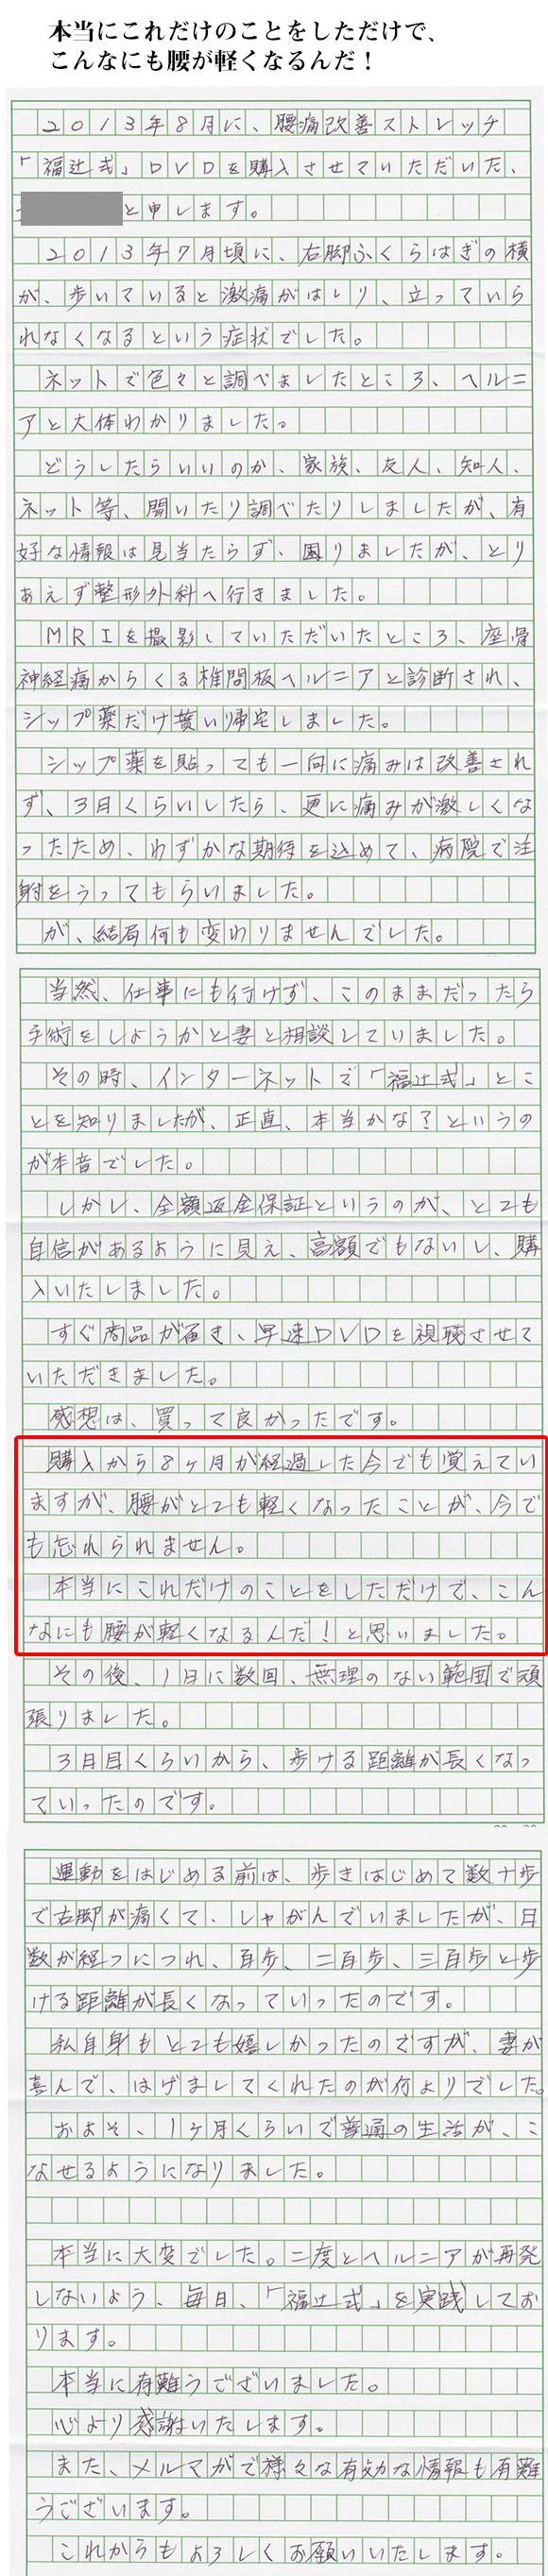 本当にこれだけのことをしただけで、
こんなにも腰が軽くなるんだ！
2013年8月に、腰痛改善ストレッチ
「福辻式」DVDを購入させていただいた、
と申します。
2013年7月頃に、右脚ふくらはぎの横
が、歩いていると激痛がはしり、立っていら
れなくなるという症状でした。
ネットで色々と調べましたところ、ヘルニ
アと大体わかりました。
どうしたらいいのか、家族、友人、知人、
ネット等、聞いたり調べたりしましたが、有
好な情報は見当たらず、困りましたが、とり
あえず整形外科へ行きました。
MRIを撮影していただいたところ、座骨
神経痛からくる椎間板ヘルニアと診断され、
シップ薬だけ貰い帰宅しました。
シップ薬を貼っても一向に痛みは改善され
ず、3日くらいしたら、更に痛みが激しくな
ったため、わずかな期待を込めて、病院で注
射をうってもらいました。
が、結局何も変わりませんでした。
当然、仕事にも行けず、このままだったら
手術をしようかと妻と相談していました。
その時、インターネットで「福辻式」とこ
とを知りましたが、正直、本当かな？というの
が本音でした。
しかし、全額返金保証というのが、とても
自信があるように見え、高額でもないし、購
入いたしました。
すぐ商品が届き、早速DVDを視聴させて
いただきました。
感想は、買って良かったです。
購入から8ヶ月が経過した今でも覚えてい
ますが、腰がとても軽くなったことが、今で
も忘れられません。
本当にこれだけのことをしただけで、こん
なにも腰が軽くなるんだ！と思いました。
その後、1日に数回、無理のない範囲で頑
張りました。
3日目くらいから、歩ける距離が長くなっ
ていったのです。
運動をはじめる前は、歩きはじめて数十歩
で右脚が痛くて、しゃがんでいましたが、日
数が経つにつれ、百歩、二百歩、三百歩と歩
ける距離が長くなっていったのです。
私自身もとても嬉しかったのですが、妻が
喜んで、はげましてくれたのが何よりでした。
およそ、1ヶ月くらいで普通の生活が、こ
なせるようになりました。
本当に大変でした。二度とヘルニアが再発
しないよう、毎日、「福辻式」を実践してお
ります。
本当に有難うございました。
心より感謝いたします。
また、メルマガで様々な有効な情報も有難
うございます。
これからもよろしくお願いいたします。